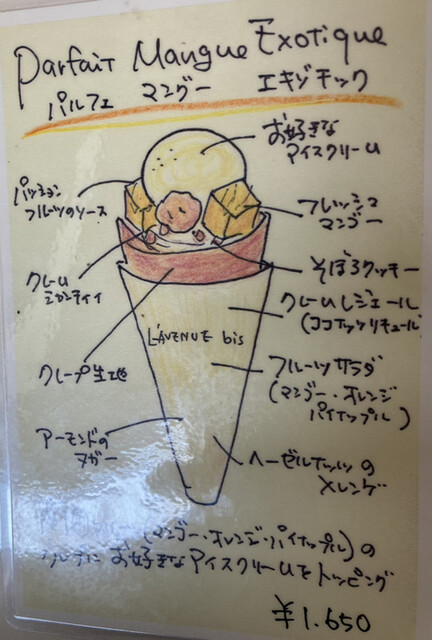 Parfait Mangue Exotique
パルフェ マンゴー エキゾチック
お好きな
アイスクリーム
パッション
フルーツのソース
フレッシュ
マンゴー
クレーム
シャンティイ
そぼろクッキー
クレームレジェール
(ココナッツリキュール)
L'AVENUE bis
クレープ生地
フルーツサラダ
(マンゴー・オレンジ
パイナップル)
アーモンドの
ヌガー
ヘーゼルナッツの
メレンゲ
(マンゴー・オレンジ・パイナップル)の
お好きなアイスクリームをトッピング
¥1.650